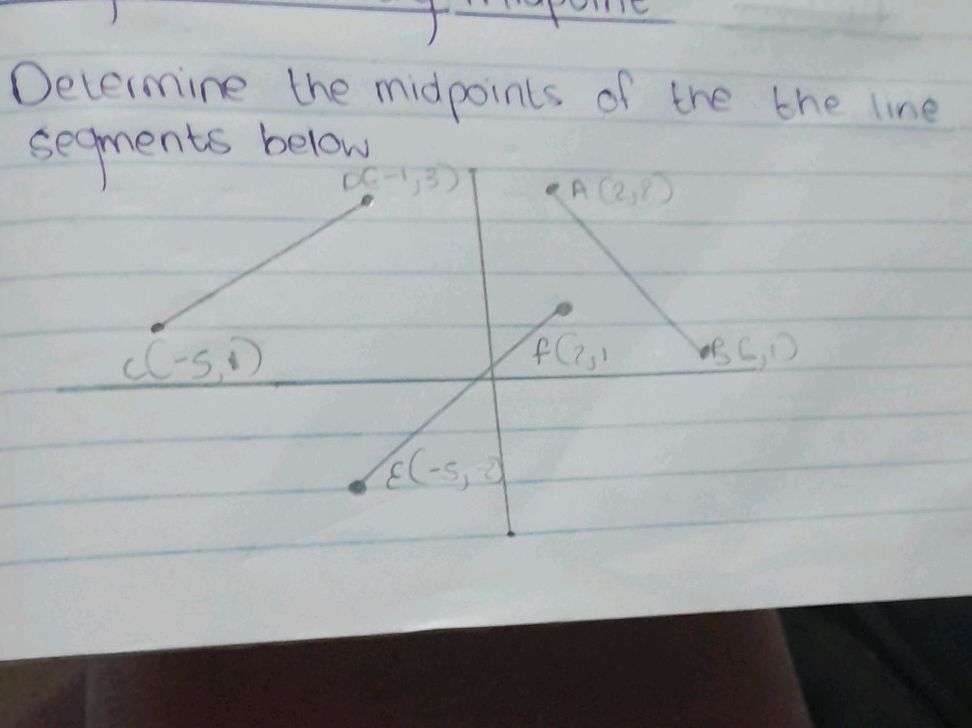 midpoint
Determine the midpoints of the the line
segments below
D(-1,3)
A(2,8)
F(2,1
C(-5,1)
B(6,1)
E(-5,-2)